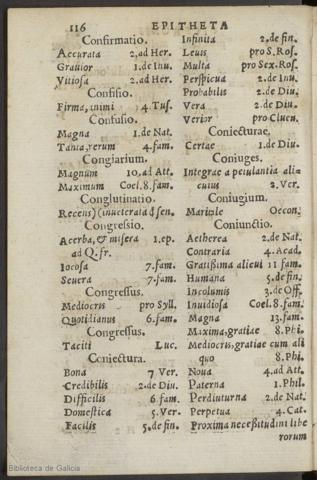 116 EPITHETA
Confirmatio.
Accurata 2.ad Her.
Grauior 1.de Inu.
Vitiosa 2.ad Her.
Confisio.
Firma, animi 4.Tus.
Confusio.
Magna 1.de Nat.
Tanta, rerum 4.fam.
Congiarium.
Magnum 10.ad Att.
Maximum Coel.8.fam.
Conglutinatio.
Recens) (inueterata de sen.
Congressio.
Acerba, & misera 1.ep.
ad Q.fr.
Iocosa 7.fam.
Seuera 7.fam.
Congressus.
Mediocris pro Syll.
Quotidianus 6.fam.
Congressus.
Taciti Luc.
Coniectura.
Bona 7 Ver.
Credibilis 2.de Diu.
Difficilis 6.fam.
Domestica 5.Ver.
Facilis 5.de fin.
Infinita 2.de fin.
Leuis pro S.Ros.
Multa pro Sex.Ros.
Perspicua 2.de Inu.
Probabilis 2.de Diu.
Vera 2.de Diu.
Verior pro Cluen.
Coniecturae.
Certae 1.de Diu.
Coniuges.
Integrae a petulantia ali=
cuius 2.Ver.
Coniugium.
Mariale Oecon.
Coniunctio.
Aetherea 2.de Nat.
Contraria 4.Acad.
Gratissima alicui 11 fam.
Humana 5.de fin.
Incolumis 3.de Off.
Inuidiosa Coel.8.fam.
Magna 13.fam.
Maxima, gratiae 8.Phi.
Mediocris, gratiae cum ali
quo 8.Phi.
Noua 4.ad Att.
Paterna 1.Phil.
Perdiuturna 2.de Nat.
Perpetua 4.Cat.
Proxima necessitudini libe
rorum
Biblioteca de Galicia